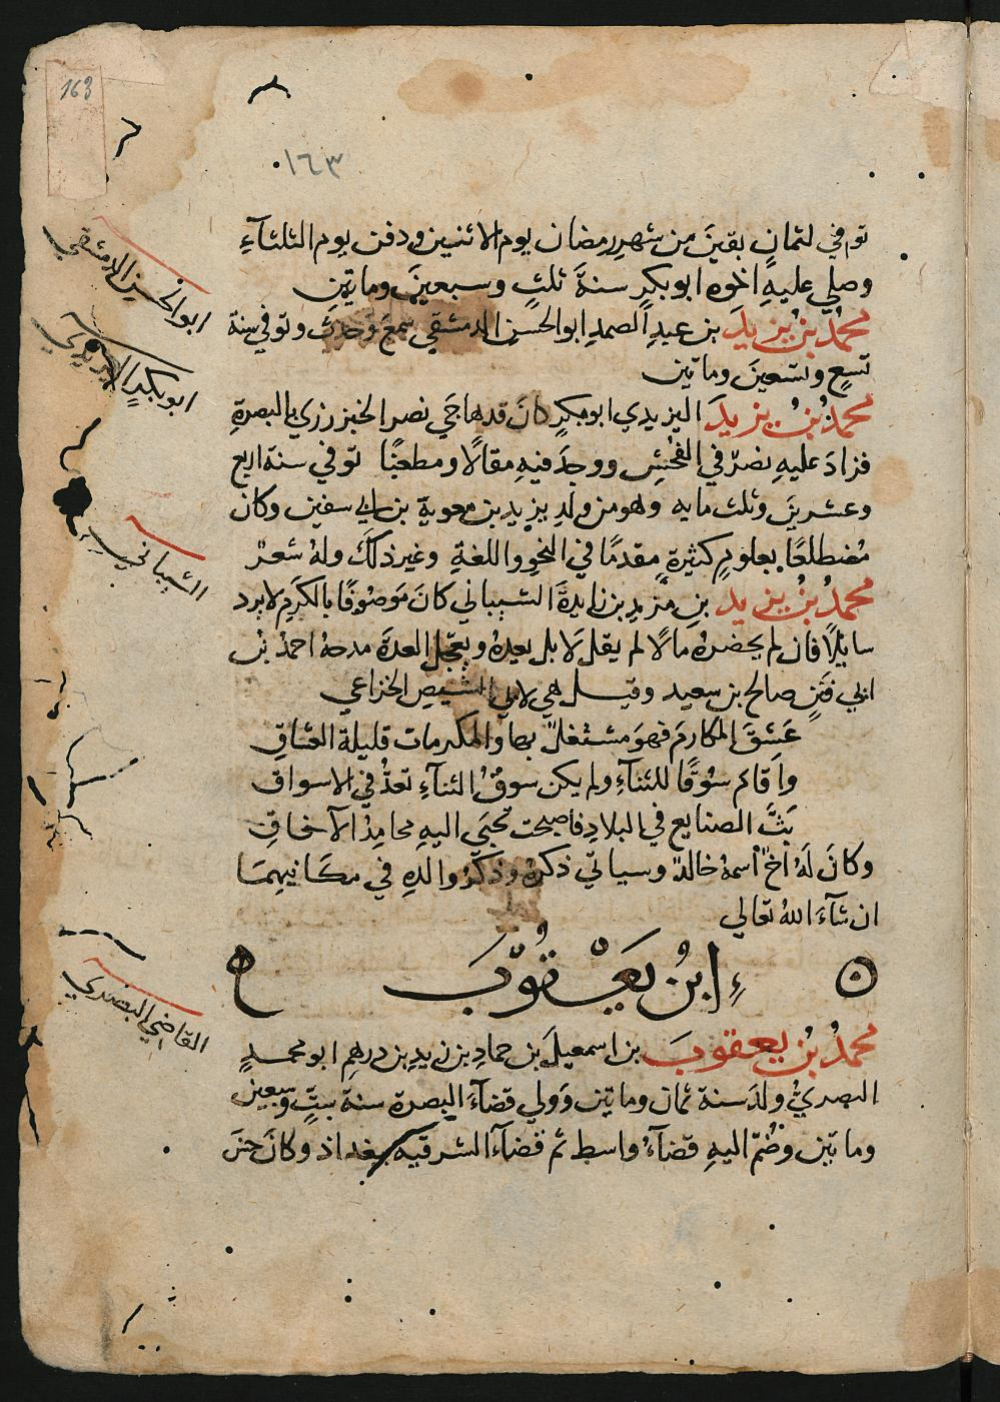 163
١٦٣
توفي لثمان بقينَ من شهر رمضان يوم الاثنين ودفن يوم الثلثآءِ
وصلي عليهِ اخوه ابو بكرٍ سنةَ ثلثٍ وسبعينَ وماتين
محمدُ بنُ يزيدَ بن عبدِ الصمدِ ابو الحسنِ الدمشقي سمعَ وحدثَ وتوفي سنة
تسعٍ وتسعينَ وماتين
محمدُ بنُ يزيدَ اليزيدي ابو بكرٍ كانَ قد هاجَي نصر الخبزرزي بالبصرةِ
فزادَ عليهِ نصرٌ في الفُحْشِ ووجدَ فيهِ مقالاً ومطعنًا توفي سنة اربع
وعشرينَ وثلث مايه وهو من ولدِ يزيد بن معوية بن ابي سفين وكان
مُضطلعًا بعلومٍ كثيرةٍ مقدمًا في النحوِ واللغةِ وغير ذلكَ ولهُ شعرٌ
محمدُ بنُ يزيد بنِ مزيدِ بن زايدةَ الشيباني كانَ مَوصُوفًا بالكرَمِ لا يرد
سايلًا فان لم يحضرهُ مالًا لم يقل لَا بل يعدهُ ويعجّل العدةَ مدحهُ احمدُ بنُ
ابي فنَنٍ صالح بن سعيد وقيل هي لابي الشيص الخزاعي
عَشِقَ المكارمَ فهوَ مشتغلٌ بها والمكرمات قليلة العشاقِ
واَقامَ سُوقًا للثنآءِ ولم يكن سوقُ الثنآءِ تعدُّ في الاسواق
بَثَّ الصنايع في البلادِ فاصبحت تجبَي اليهِ محامدُ الآفاقِ
وكانَ لَهُ اخٌ اسمهُ خالدٌ وسياتي ذكرهُ وذكرُ والدهِ في مكانيهِمَا
ان شآءَ اللهُ تعالي
ابنُ يَعْقُوْبَ
محمدُ بنُ يعقوبَ بن اسمعيلَ بن حمادِ بن زيدِ بن درهمٍ ابو محمدٍ
البصريُّ ولدَ سنة ثمان وماتين وَولي قضآءَ البصرة سنة ستٍّ وسبعين
وماتين وضُمّ اليهِ قضآءُ واسط ثم قضآءُ الشرقيه ببغداذ وكانَ حسَن
ابو الحسن الدمشقي
ابو بكر اليزيدي
الشيباني
القاضي البصري